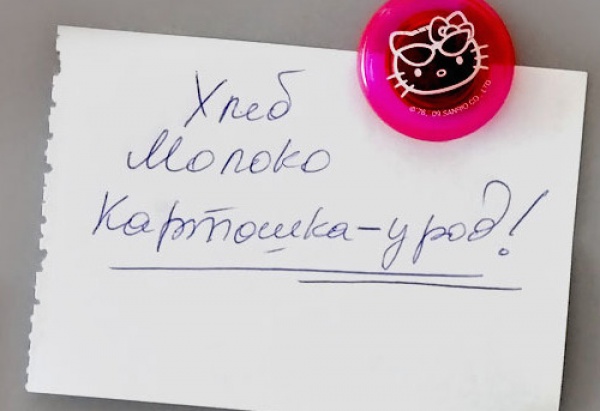 © '76, '09 SANRIO CO., LTD
Хлеб
Молоко
Картошка-урод!